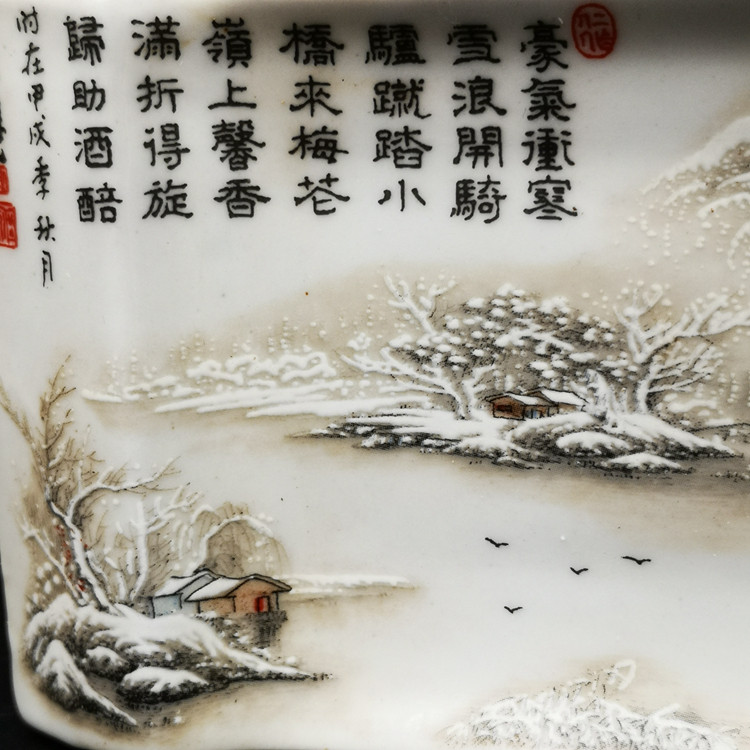 豪氣衝寒
雪浪開騎
驢蹴踏小
橋來梅花
嶺上馨香
滿折得旋
歸助酒醅
時在甲戌季秋月